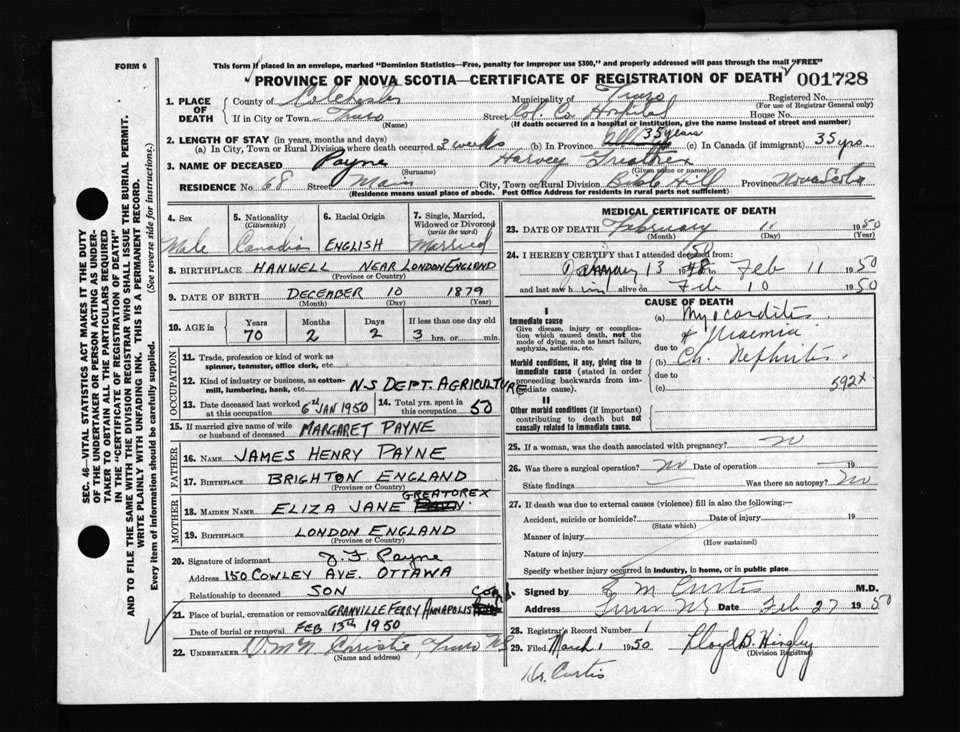 FORM 6
This form if placed in an envelope, marked "Dominion Statistics—Free, penalty for improper use $300," and properly addressed will pass through the mail "FREE"
PROVINCE OF NOVA SCOTIA—CERTIFICATE OF REGISTRATION OF DEATH 001728
1. PLACE OF DEATH County of Colchester Municipality of Truro Registered No.
(For use of Registrar General only)
If in City or Town Truro Street Col. Co. Hospital House No.
(Name) (If death occurred in a hospital or institution, give the name instead of street and number)
2. LENGTH OF STAY (in years, months and days)
(a) In City, Town or Rural Division where death occurred 3 weeks (b) In Province 35 years (c) In Canada (if immigrant) 35 yrs.
3. NAME OF DECEASED Payne Harvey Greatorex
(Surname) (Given name or names)
RESIDENCE No. 68 Street Main City, Town or Rural Division Bible Hill Province Nova Scotia
(Residence means usual place of abode. Post Office Address for residents in rural parts not sufficient)
4. Sex Male
5. Nationality (Citizenship) Canadian
6. Racial Origin ENGLISH
7. Single, Married, Widowed or Divorced (write the word) Married
8. BIRTHPLACE HANWELL NEAR LONDON ENGLAND
(Province or Country)
9. DATE OF BIRTH DECEMBER 10 1879
(Month) (Day) (Year)
10. AGE in Years 70 Months 2 Days 2 If less than one day old 3 hrs. or min.
OCCUPATION
11. Trade, profession or kind of work as spinner, teamster, office clerk, etc.
12. Kind of industry or business, as cotton-mill, lumbering, bank, etc. N.S DEPT. AGRICULTURE
13. Date deceased last worked at this occupation 6th JAN 1950
14. Total yrs. spent in this occupation 50
15. If married give name of wife or husband of deceased MARGARET PAYNE
FATHER
16. Name JAMES HENRY PAYNE
17. Birthplace BRIGHTON ENGLAND
(Province or Country)
MOTHER
18. Maiden Name ELIZA JANE GREATOREX
19. Birthplace LONDON ENGLAND
(Province or Country)
20. Signature of informant J. F. Payne
Address 150 COWLEY AVE. OTTAWA
Relationship to deceased SON
21. Place of burial, cremation or removal GRANVILLE FERRY ANNAPOLIS
Date of burial or removal FEB 13th 1950
22. UNDERTAKER Christie, Truro NS
(Name and address)
MEDICAL CERTIFICATE OF DEATH
23. DATE OF DEATH February 11 1950
(Month) (Day)
24. I HEREBY CERTIFY that I attended deceased from
January 13 1950 to Feb 11 1950
and last saw him alive on Feb 10 1950
CAUSE OF DEATH
I
Immediate cause
Give disease, injury or complication which caused death, not the mode of dying, such as heart failure, asphyxia, asthenia, etc.
(a) Myocarditis
& Uraemia
due to
Morbid conditions, if any, giving rise to immediate cause (stated in order proceeding backwards from immediate cause).
(b) Ch. Nephritis.
due to
(c) 592x
II
Other morbid conditions (if important) contributing to death but not causally related to immediate cause.
25. If a woman, was the death associated with pregnancy? no
26. Was there a surgical operation? no Date of operation 19
State findings Was there an autopsy? no
27. If death was due to external causes (violence) fill in also the following:—
Accident, suicide or homicide? Date of injury 19
(State which)
Manner of injury
(How sustained)
Nature of injury
Specify whether injury occurred in industry, in home, or in public place
Signed by E M Curtis M.D.
Address Truro NS Date Feb 27 1950
28. Registrar's Record Number 1
29. Filed March 1 1950 Lloyd B. Hingley
(Division Registrar)
Dr. Curtis
SEC. 46—VITAL STATISTICS ACT MAKES IT THE DUTY OF THE UNDERTAKER OR PERSON ACTING AS UNDERTAKER TO OBTAIN ALL THE PARTICULARS REQUIRED IN THE "CERTIFICATE OF REGISTRATION OF DEATH"
AND TO FILE THE SAME WITH THE DIVISION REGISTRAR WHO SHALL ISSUE THE BURIAL PERMIT.
WRITE PLAINLY WITH UNFADING INK. THIS IS A PERMANENT RECORD.
Every item of information should be carefully supplied. (See reverse side for instructions.)